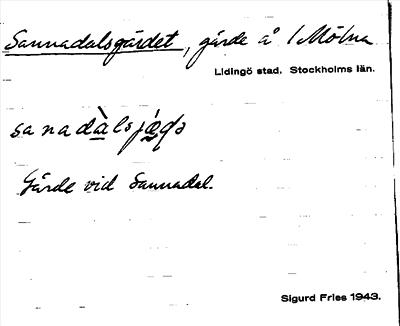 Sannadalsgärdet, gärde å /Mölna
Lidingö stad. Stockholms län.
Gärde vid Sannadal.
Sigurd Fries 1943.